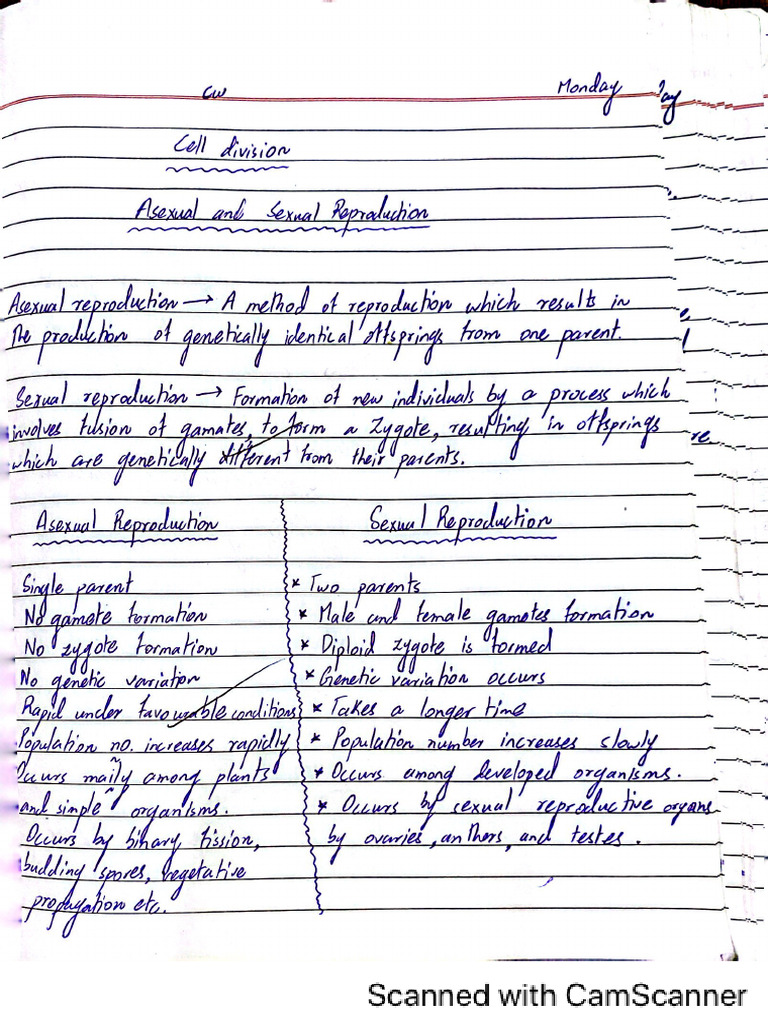 cw Monday
Cell division
Asexual and Sexual Reproduction
Asexual reproduction → A method of reproduction which results in
the production of genetically identical offsprings from one parent.
Sexual reproduction → Formation of new individuals by a process which
involves fusion of gamates, to form a zygote, resulting in offsprings
which are genetically different from their parents.
Asexual Reproduction Sexual Reproduction
Single parent * Two parents
No gamete formation * Male and female gametes formation
No zygote formation * Diploid zygote is formed
No genetic variation * Genetic variation occurs
Rapid under favourable conditions * Takes a longer time
Population no. increases rapidly * Population number increases slowly
Occurs maily among plants * Occurs among developed organisms.
and simple organisms. * Occurs by sexual reproductive organs
Occurs by binary fission, by ovaries, anthers, and testes.
budding spores, vegetative
propagation etc.
Scanned with CamScanner